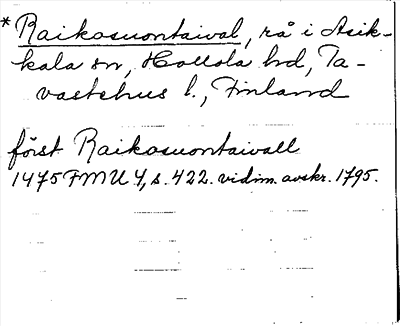 * Raikasuontaival, rå i Asik-
kala sn, Hollola hd, Ta-
vastehus l., Finland
först Raikasuontaivall
1475 FMU 4, s. 422. vidim. avskr. 1795.